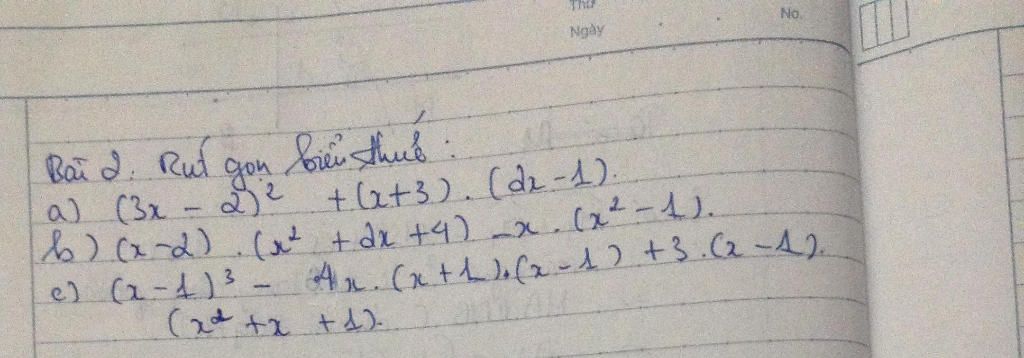 Thứ
Ngày
No.
Bài 2. Rút gọn biểu thức:
a) (3x - 2)² + (x+3). (2x-1).
b) (x-2). (x² + 2x + 4) - x. (x² - 1).
c) (x-1)³ - 4x. (x+1).(x-1) + 3.(x-1).
(x² + x + 1).